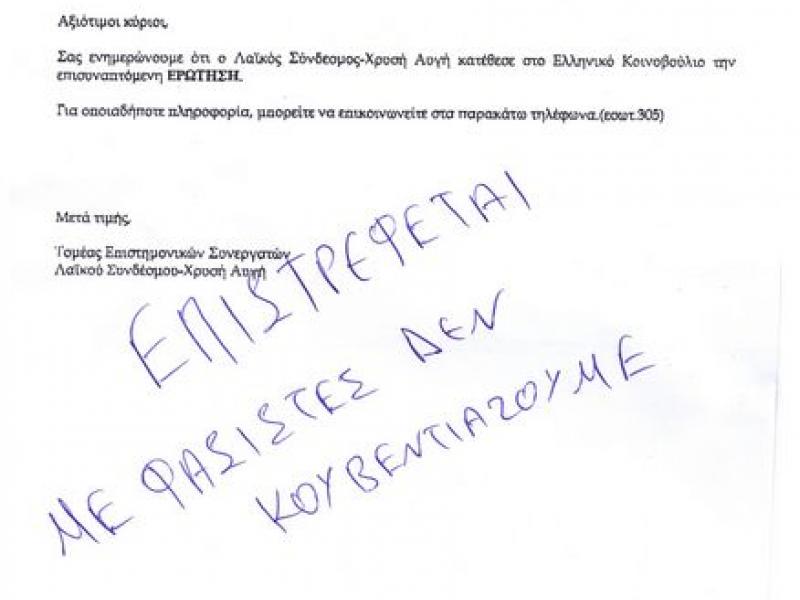 Αξιότιμοι κύριοι,
Σας ενημερώνουμε ότι ο Λαϊκός Σύνδεσμος-Χρυσή Αυγή κατέθεσε στο Ελληνικό Κοινοβούλιο την
επισυναπτόμενη ΕΡΩΤΗΣΗ.
Για οποιαδήποτε πληροφορία, μπορείτε να επικοινωνείτε στα παρακάτω τηλέφωνα.(εσωτ.305)
Μετά τιμής,
Τομέας Επιστημονικών Συνεργατών
Λαϊκού Συνδέσμου-Χρυσή Αυγή
ΕΠΙΣΤΡΕΦΕΤΑΙ
ΜΕ ΦΑΣΙΣΤΕΣ ΔΕΝ
ΚΟΥΒΕΝΤΙΑΖΟΥΜΕ